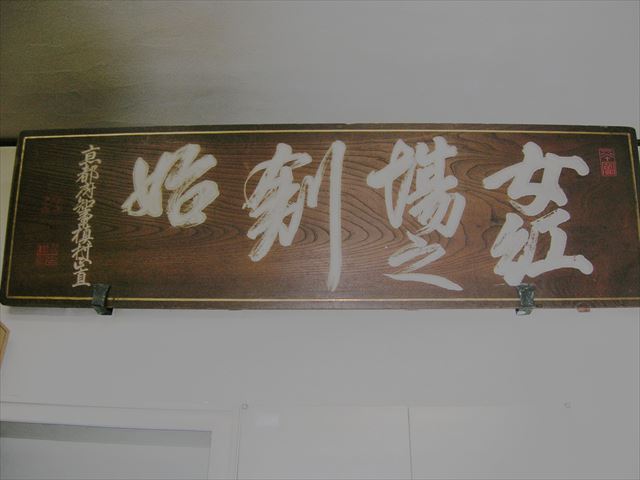 女紅
場之
創
始
京都府知事槇村正直